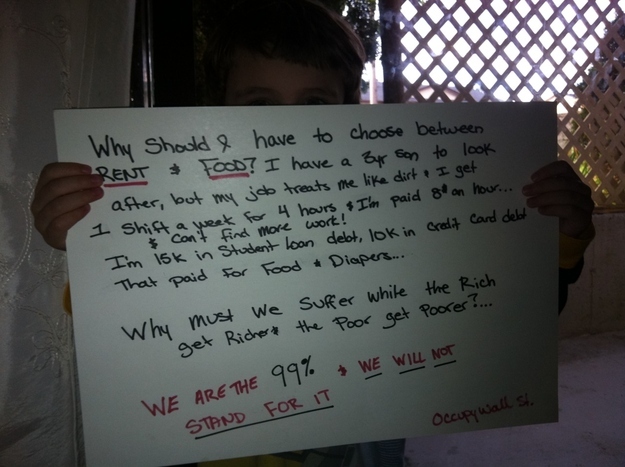 Why Should I have to choose between
RENT & FOOD? I have a 3yr son to look
after, but my job treats me like dirt & I get
1 Shift a week for 4 hours & I'm paid 8$ an hour...
& can't find more work!
I'm 15k in Student loan debt, 10k in credit card debt
That paid for Food & Diapers...
Why must we suffer while the Rich
get Richer & the Poor get Poorer?...
WE ARE THE 99% & WE WILL NOT
STAND FOR IT
Occupy Wall St.